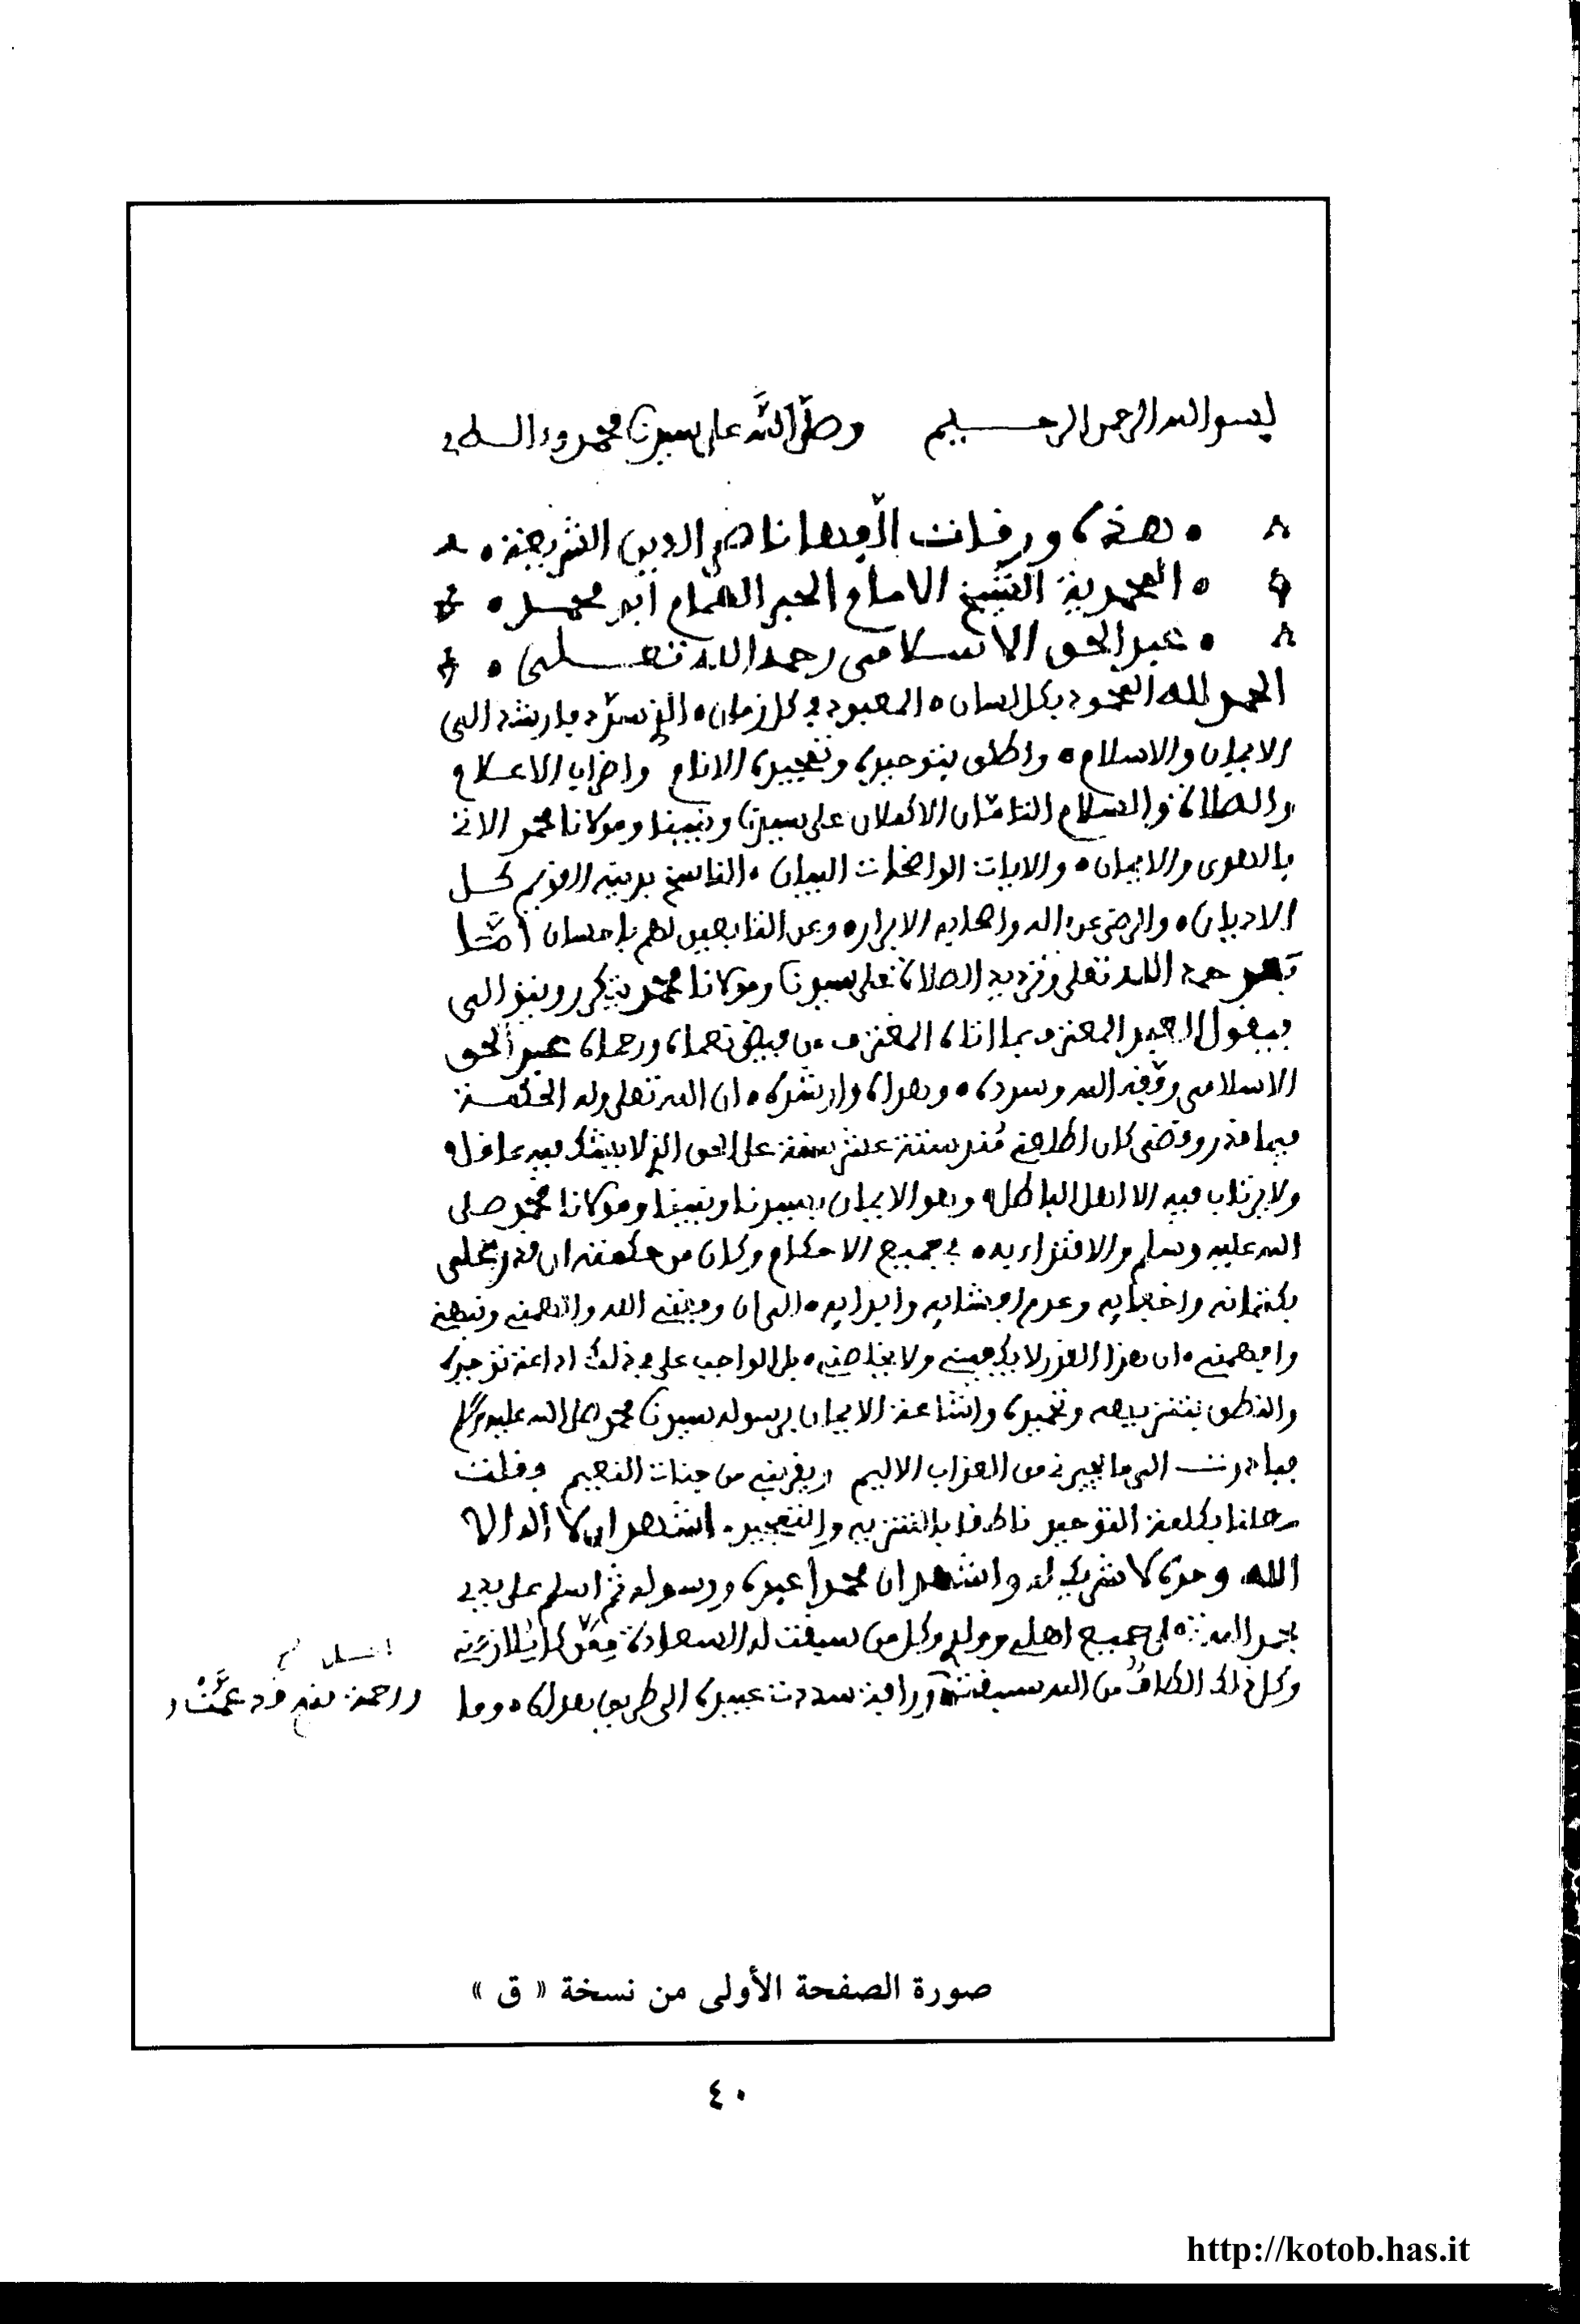 بسم الله الرحمن الرحيم وصلى الله على سيدنا محمد وءاله
هذه ورقات ألفها ناصر الدين الشريعة
المحمدية الشيخ الامام الحبر الهمام ابو محمد
عبد الحق الاسلامي رحمه الله تعلى
الحمد لله المحمود بكل لسان المعبود في كل زمان الذي إلى
الايمان والاسلام وانطق بتوحيده وتمجيده الانام
والصلاة والسلام التامان الاكملان على سيدنا ونبينا ومولانا محمد الاتي
بالهدى والايمان والايات الواضحات البيان الناسخ بدينه القويم كل
الاديان والرضى عن اله واصحابه الابرار وعن التابعين لهم باحسان امّا
بعد حمد الله تعلى وترديد الصلاة على سيدنا ومولانا محمد
فيقول العبد المعترف بما اتاه المغترف من فيض نعماه ورحماه عبد الحق
الاسلامي وفّقه الله وسدده وهداه وارشده ان الله تعلى وله الحكمة
فيما قدر وقضى كان اطلعني منذ ستة عشر سنة على الحق الذي لا يشك فيه عاقل
ولا يرتاب فيه الا اهل الباطل وهو الايمان بسيدنا ونبينا ومولانا محمد صلى
الله عليه وسلم والاقتداء به في جميع الاحكام وكان من حكمته ان قدر علي
بكتمانه واخفايه وعدم افشايه وابدايه الى ان وفقني الله والهمني ونبهني
وافهمني ان هذا القدر لا يكفيني ولا يخلصني بل الواجب علي في ذلك اذاعة توحيده
والنطق بتنزيهه وتمجيده واشاعة الايمان برسوله سيدنا محمد صلى الله عليه وسلم
فبادرت الى ما يجيرني من العذاب الاليم ويقربني من جنات النعيم وقلت
معلنا بكلمة التوحيد ناطقا بالتنزيه والتمجيد اشهد ان لا اله الا
الله وحده لا شريك له واشهد ان محمدا عبده ورسوله ثم اسلم على يدي
بحمد الله تعلى جميع اهلي وولدي وكل من سبقت له السعادة ممّن
وكل ذلك الطاف من الله سبقت ورافة سددت عبيده الى طريق هداه وما
ورحمة منه قد عمّت
صورة الصفحة الأولى من نسخة « ق »
٤٠
http://kotob.has.it